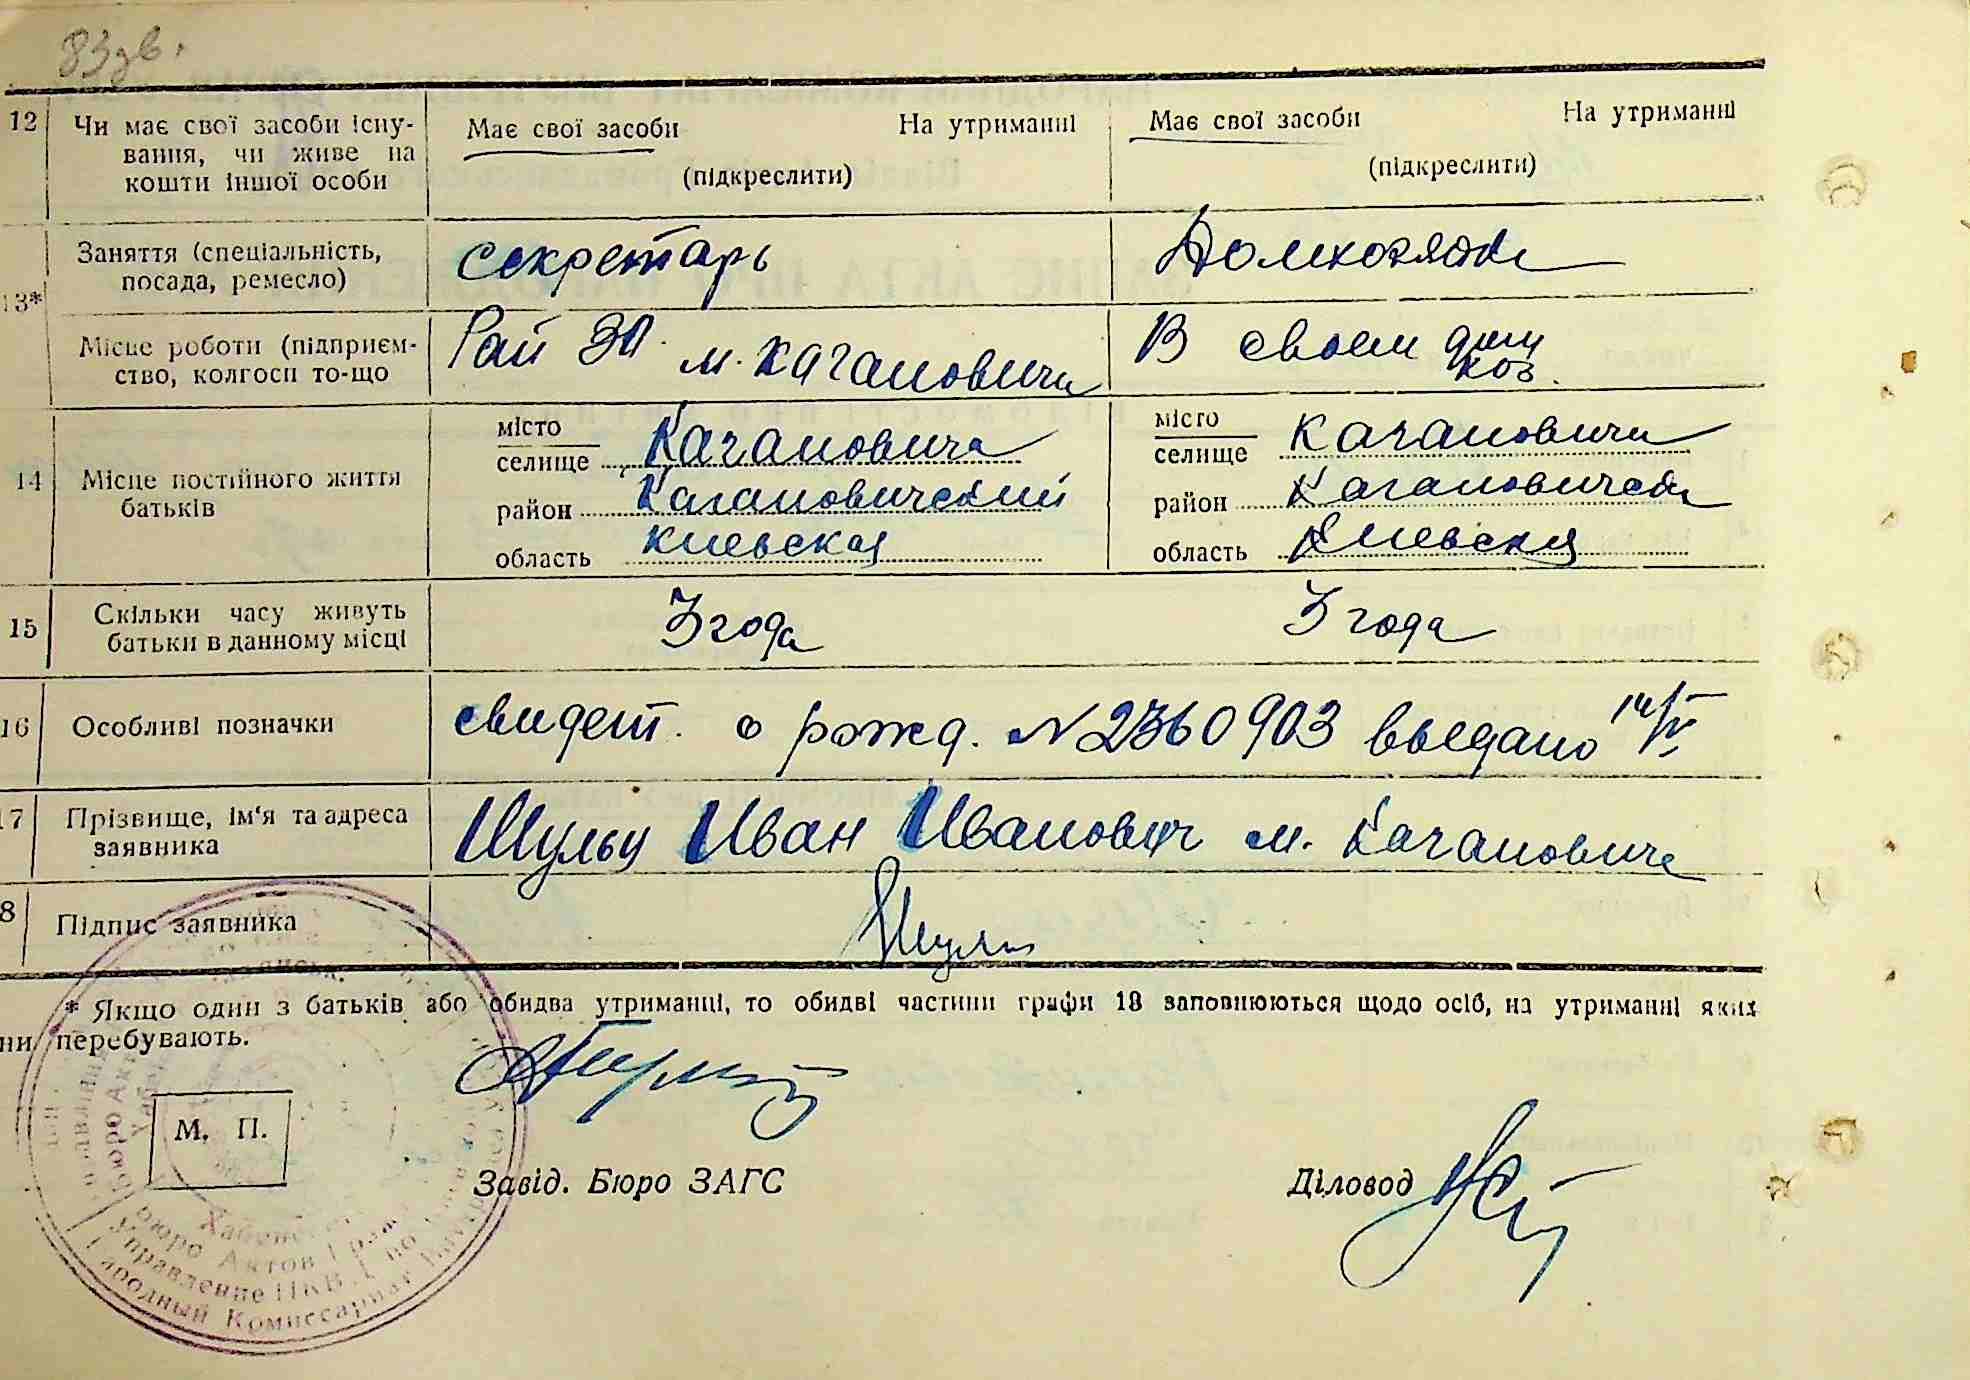 83зв.
12 Чи має свої засоби існу-
вання, чи живе на
кошти іншої особи
Має свої засоби На утриманні
(підкреслити)
Має свої засоби На утриманні
(підкреслити)
13*
Заняття (спеціальність,
посада, ремесло)
секретарь
Домхозяйк
Місце роботи (підприєм-
ство, колгосп то-що
Рай ЗО м. Кагановича
В своем дом
хоз.
14 Місце постійного життя
батьків
місто
селище Кагановича
район Кагановический
область Киевская
місто
селище Кагановичи
район Кагановичск
область Киевская
15 Скільки часу живуть
батьки в данному місці
3 года
3 года
16 Особливі позначки
свидет. о рожд. №2360903 выдано 14/V
17 Прізвище, ім'я та адреса
заявника
Шульц Иван Иванович м. Кагановиче
8 Підпис заявника
* Якщо один з батьків або обидва утриманці, то обидві частини графи 13 заповнюються щодо осіб, на утриманні яких
ни перебувають.
М. П.
Завід. Бюро ЗАГС
Діловод
Бюро Актов Граж
Управление НКВД по
Народный Комиссариат Внутр